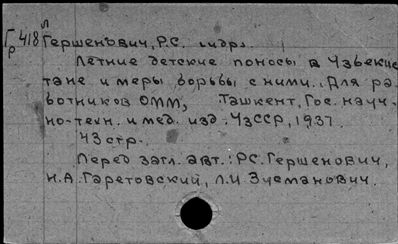 Г р 418 л
Гершенович, Р.С. и др.
Летние детские поносы в Узбекис
тане и меры борьбы с ними. Для ра-
ботников ОММ, Ташкент, Гос. науч-
но-техн. и мед. изд. УзССР, 1937.
43 стр.
Перед загл. авт.: Р.С. Гершенович,
Н.А. Гаретовский, Л.И. Зусманович.